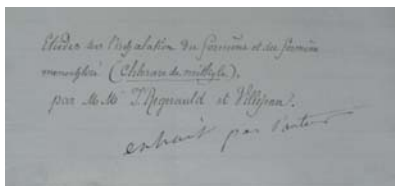 Etudes sur l'inhalation du formène et du formène
monochloré (Chlorure de méthyle),
par M M. J. Regnauld et Villejean.
extrait par l'auteur